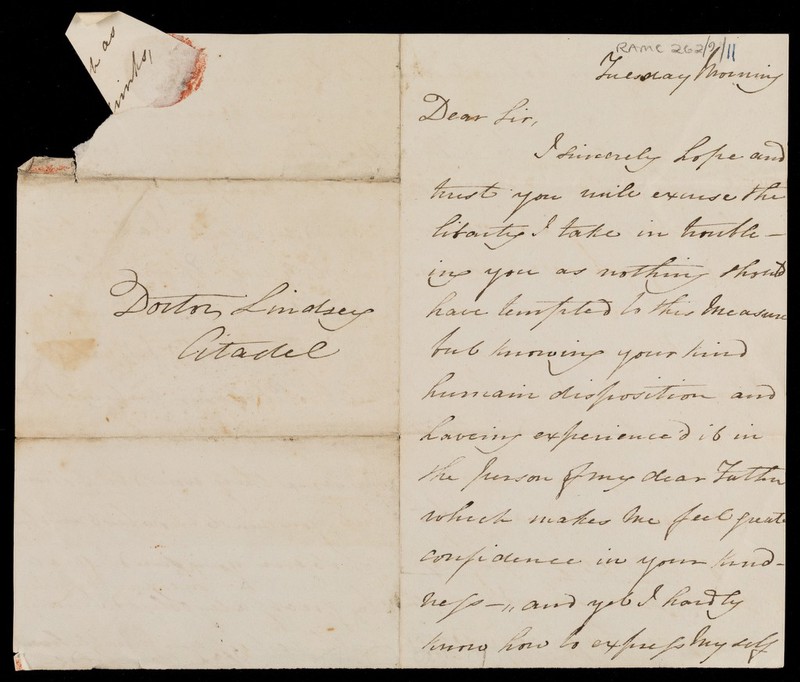 t as
inks,
Doctor Lindsey
Citadel
RAMC 262/9/11
Tuesday Morning
Dear Sir,
I sincerely hope and
trust you will excuse the
libarty I take in trouble-
ing you as nothing should
have tempted to this Measure
but knowing your kind
humain disposition and
haveing experienced it in
the person of my dear Father
which makes me feel great
confidence in your kind-
ness -,, and yet I hardly
know how to express My self